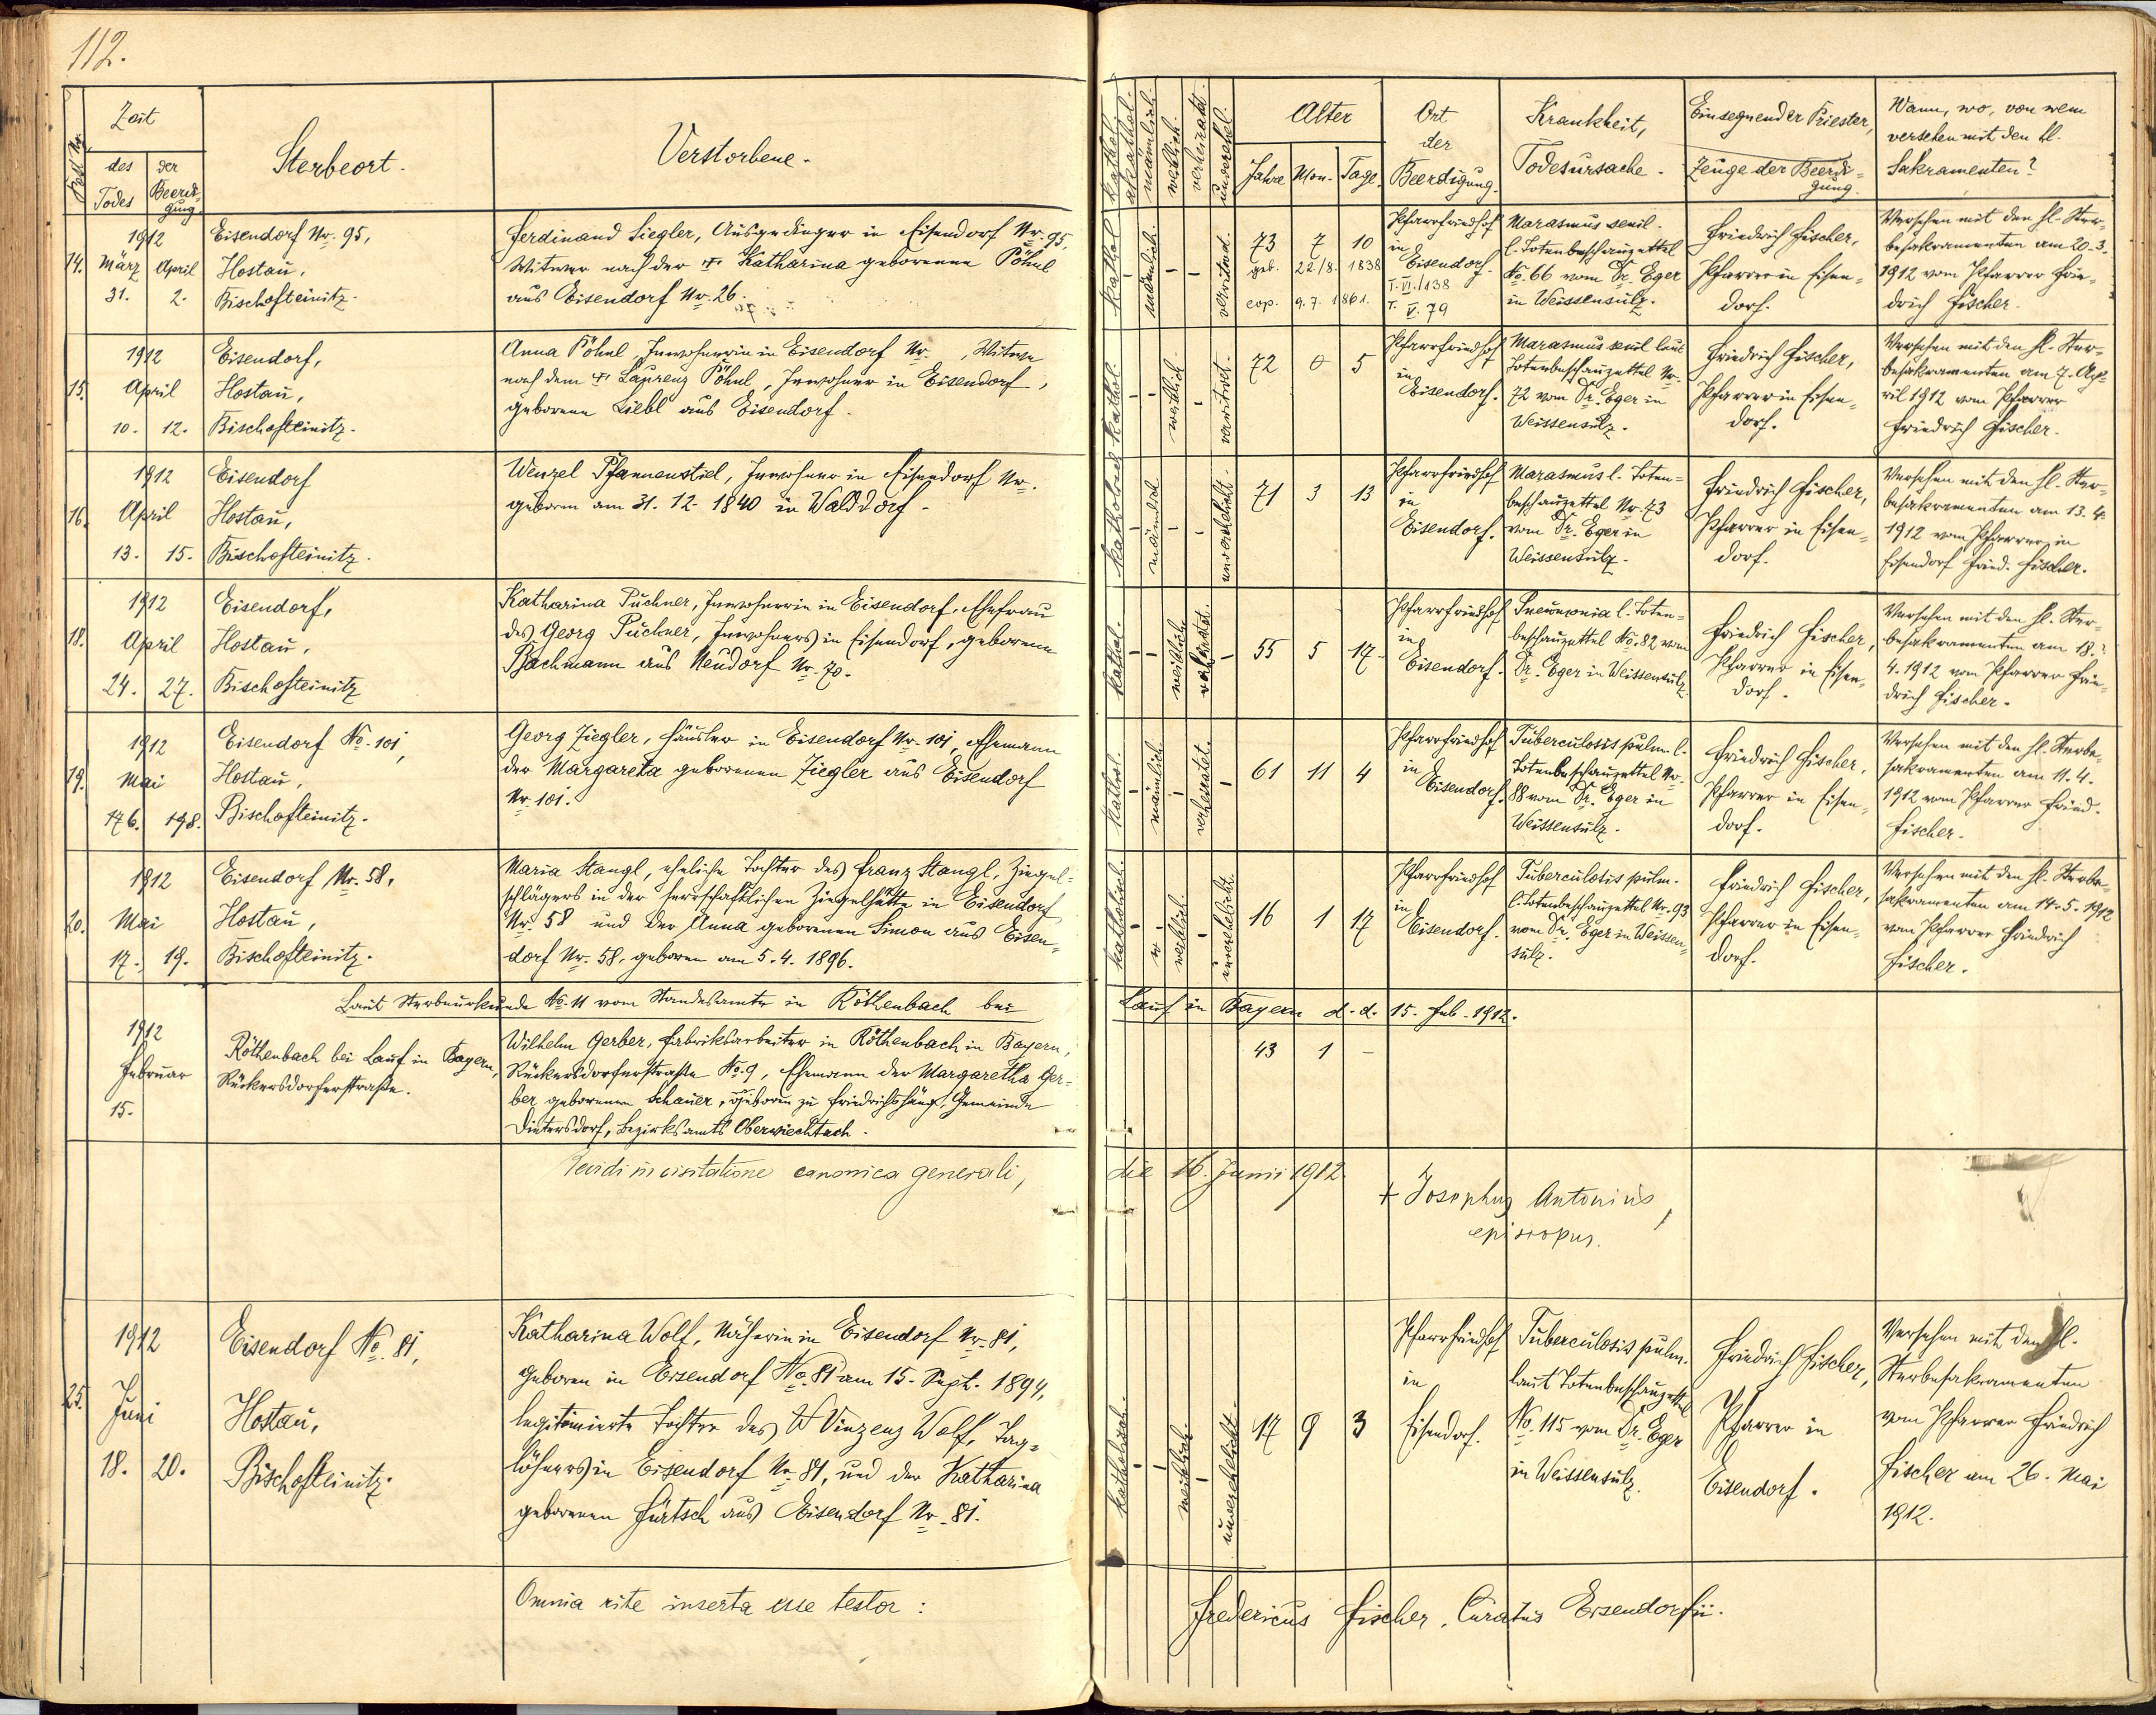 112.
Zeit
des Todes
der Beerdigung.
Sterbeort.
Verstorbene.
1912
14. März April
31. 2.
Eisendorf Nr. 95,
Hostau,
Bischofteinitz.
Ferdinand Siegler, Ausgedinger in Eisendorf Nr. 95,
Witwer nach der + Katharina geborenen Pöhnl
aus Eisendorf Nr. 26.
1912
15. April
10. 12.
Eisendorf,
Hostau,
Bischofteinitz.
Anna Pöhnl Inwohnerin in Eisendorf Nr. , Witwe
nach dem + Laurenz Pöhnl, Inwohner in Eisendorf,
geborene Liebl aus Eisendorf.
1912
16. April
13. 15.
Eisendorf
Hostau,
Bischofteinitz.
Wenzel Pfannenstiel, Inwohner in Eisendorf Nr.
geboren am 31. 12. 1840 in Walddorf.
1912
18. April
24. 27.
Eisendorf,
Hostau,
Bischofteinitz
Katharina Puchner, Inwohnerin in Eisendorf, Ehefrau
des Georg Puchner, Inwohners in Eisendorf, geborene
Bachmann aus Neudorf Nr. 70.
1912
19. Mai
Eisendorf No. 101,
Hostau,
Bischofteinitz.
Georg Ziegler, Häusler in Eisendorf Nr. 101, Ehemann
der Margareta geborenen Ziegler aus Eisendorf
Nr. 101.
1912
20. Mai
17. 19.
Eisendorf Nr. 58,
Hostau,
Bischofteinitz.
Maria Stangl, eheliche Tochter des Franz Stangl, Ziegel=
schlägers in der herrschaftlichen Ziegelhütte in Eisendorf
Nr. 58 und der Anna geborenen Simon aus Eisen=
dorf Nr. 58, geboren am 5. 4. 1896.
Laut Sterbeurkunde No. 11 vom Standesamte in Röthenbach bei
1912
Februar
15.
Röthenbach bei Lauf in Bayern,
Rückersdorferstraße.
Wilhelm Gerber, Fabriksarbeiter in Röthenbach in Bayern,
Rückersdorferstraße No. 9, Ehemann der Margaretha Ger=
ber geborenen Schauer, geboren zu Friedrichshäng, Gemeinde
Dietersdorf, Bezirksamts Oberviechtach.
Revidi in visitatione canonica generali,
1912
25. Juni
18. 20.
Eisendorf No. 81,
Hostau,
Bischofteinitz.
Katharina Wolf, Näherin in Eisendorf Nr. 81,
geboren in Eisendorf No. 81 am 15. Sept. 1894,
legitimierte Tochter des Vinzenz Wolf, Tag=
löhners in Eisendorf Nr. 81, und der Katharina
geborenen Fürtsch aus Eisendorf Nr. 81.
Omnia rite inserta esse testor:
kathol.
akathol.
männlich.
weiblich.
verheiratet.
unverehel.
Alter
Jahre Mon. Tage.
Ort
der
Beerdigung.
Krankheit,
Todesursache.
Einsegnender Priester,
Zeuge der Beerdi=
gung.
Wann, wo, von wem
versehen mit den hl.
Sakramenten?
kathol. männlich. verwitwet.
73 7 10
geb. 22/8. 1838
cop. 9. 7. 1861.
Pfarrfriedhof
in
Eisendorf.
T. VI./138
T. V. 79
Marasmus senil.
l. Totenbeschauzettel
No. 66 vom Dr. Eger
in Weissensulz.
Friedrich Fischer,
Pfarrer in Eisen=
dorf.
Versehen mit den hl. Ster=
besakramenten am 20. 3.
1912 vom Pfarrer Frie=
drich Fischer.
kathol. weiblich verwitwet.
72 0 5
Pfarrfriedhof
in
Eisendorf.
Marasmus senil laut
Totenbeschauzettel Nr.
72 vom Dr. Eger in
Weissensulz.
Friedrich Fischer,
Pfarrer in Eisen=
dorf.
Versehen mit den hl. Ster=
besakramenten am 7. Ap=
ril 1912 vom Pfarrer
Friedrich Fischer.
katholisch männlich. unverehelicht.
71 3 13
Pfarrfriedhof
in
Eisendorf.
Marasmus l. Toten=
beschauzettel Nr. 73
vom Dr. Eger in
Weissensulz.
Friedrich Fischer,
Pfarrer in Eisen=
dorf.
Versehen mit den hl. Ster=
besakramenten am 13. 4.
1912 vom Pfarrer in
Eisendorf Fried. Fischer.
kathol. weiblich
55 5 17
Pfarrfriedhof
in
Eisendorf.
Pneumonia l. Toten=
beschauzettel No. 82 vom
Dr. Eger in Weissensulz
Friedrich Fischer,
Pfarrer in Eisen=
dorf.
Versehen mit den hl. Ster=
besakramenten am 18.
4. 1912 vom Pfarrer Frie=
drich Fischer.
kathol. männlich. verheiratet.
61 11 4
Pfarrfriedhof
in
Eisendorf.
Tuberculosis pulm. l.
Totenbeschauzettel Nr.
88 vom Dr. Eger in
Weissensulz.
Friedrich Fischer,
Pfarrer in Eisen=
dorf.
Versehen mit den hl. Sterbe=
sakramenten am 11. 4.
1912 vom Pfarrer Fried.
Fischer.
katholisch. weiblich. unverehelicht.
16 1 17
Pfarrfriedhof
in
Eisendorf.
Tuberculosis pulm.
l. Totenbeschauzettel Nr. 93
vom Dr. Eger in Weissen=
sulz.
Friedrich Fischer,
Pfarrer in Eisen=
dorf.
Versehen mit den hl. Sterbe=
sakramenten am 14. 5. 1912
vom Pfarrer Friedrich
Fischer.
Lauf in Bayern d. d. 15. Feb. 1912.
43 1 –
die 16. Junii 1912.
+ Josephus Antonius,
episcopus.
katholisch. weiblich. unverehelicht.
17 9 3
Pfarrfriedhof
in
Eisendorf.
Tuberculosis pulm.
laut Totenbeschauzettel
No. 115 vom Dr. Eger
in Weissensulz.
Friedrich Fischer,
Pfarrer in
Eisendorf.
Versehen mit den hl.
Sterbesakramenten
vom Pfarrer Friedrich
Fischer am 26. Mai
1912.
Fredericus Fischer, Curatus Eisendorfii.